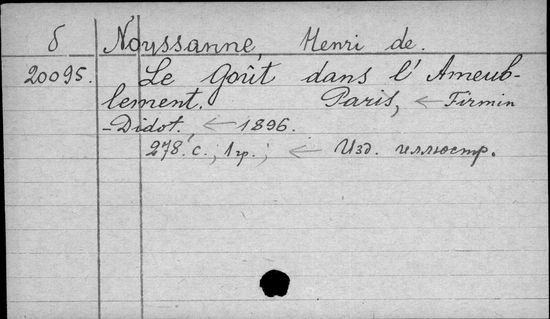 б Noussanne, Henri de.
20095. Le Goût dans l'Ameub-
lement. Paris, ← Firmin
-Didot. ← 1896.
278 с., 1 гр.; ← Изд. иллюстр.